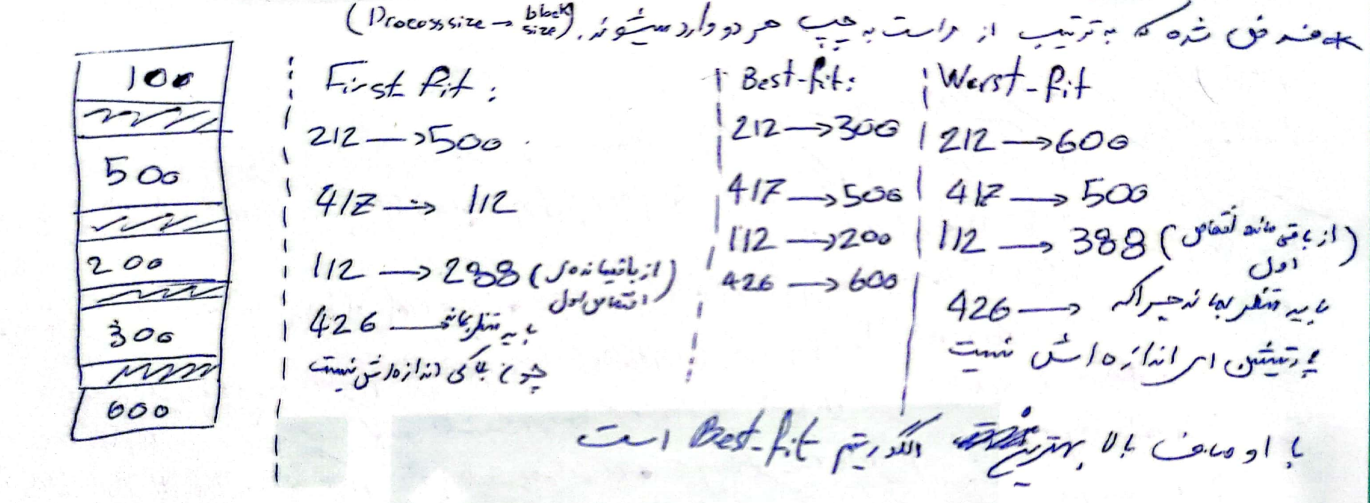 * فرض شده که به ترتیب از راست به چپ هر دو وارد میشوند. (Process size → block size)
100
500
200
300
600
First fit:
212 → 500
417 → 112
112 → 288 (از باقیمانده‌ی افتضاض اول)
426 → باید منتظر بماند
چون بلاکی اندازه‌اش نیست
Best-fit:
212 → 300
417 → 500
112 → 200
426 → 600
Worst-fit
212 → 600
417 → 500
112 → 388 (از باقی مانده اول)
426 → باید منتظر بماند چرا که
پارتیشن ای اندازه اش نیست
با اوصاف بالا بهترین الگوریتم Best-fit است